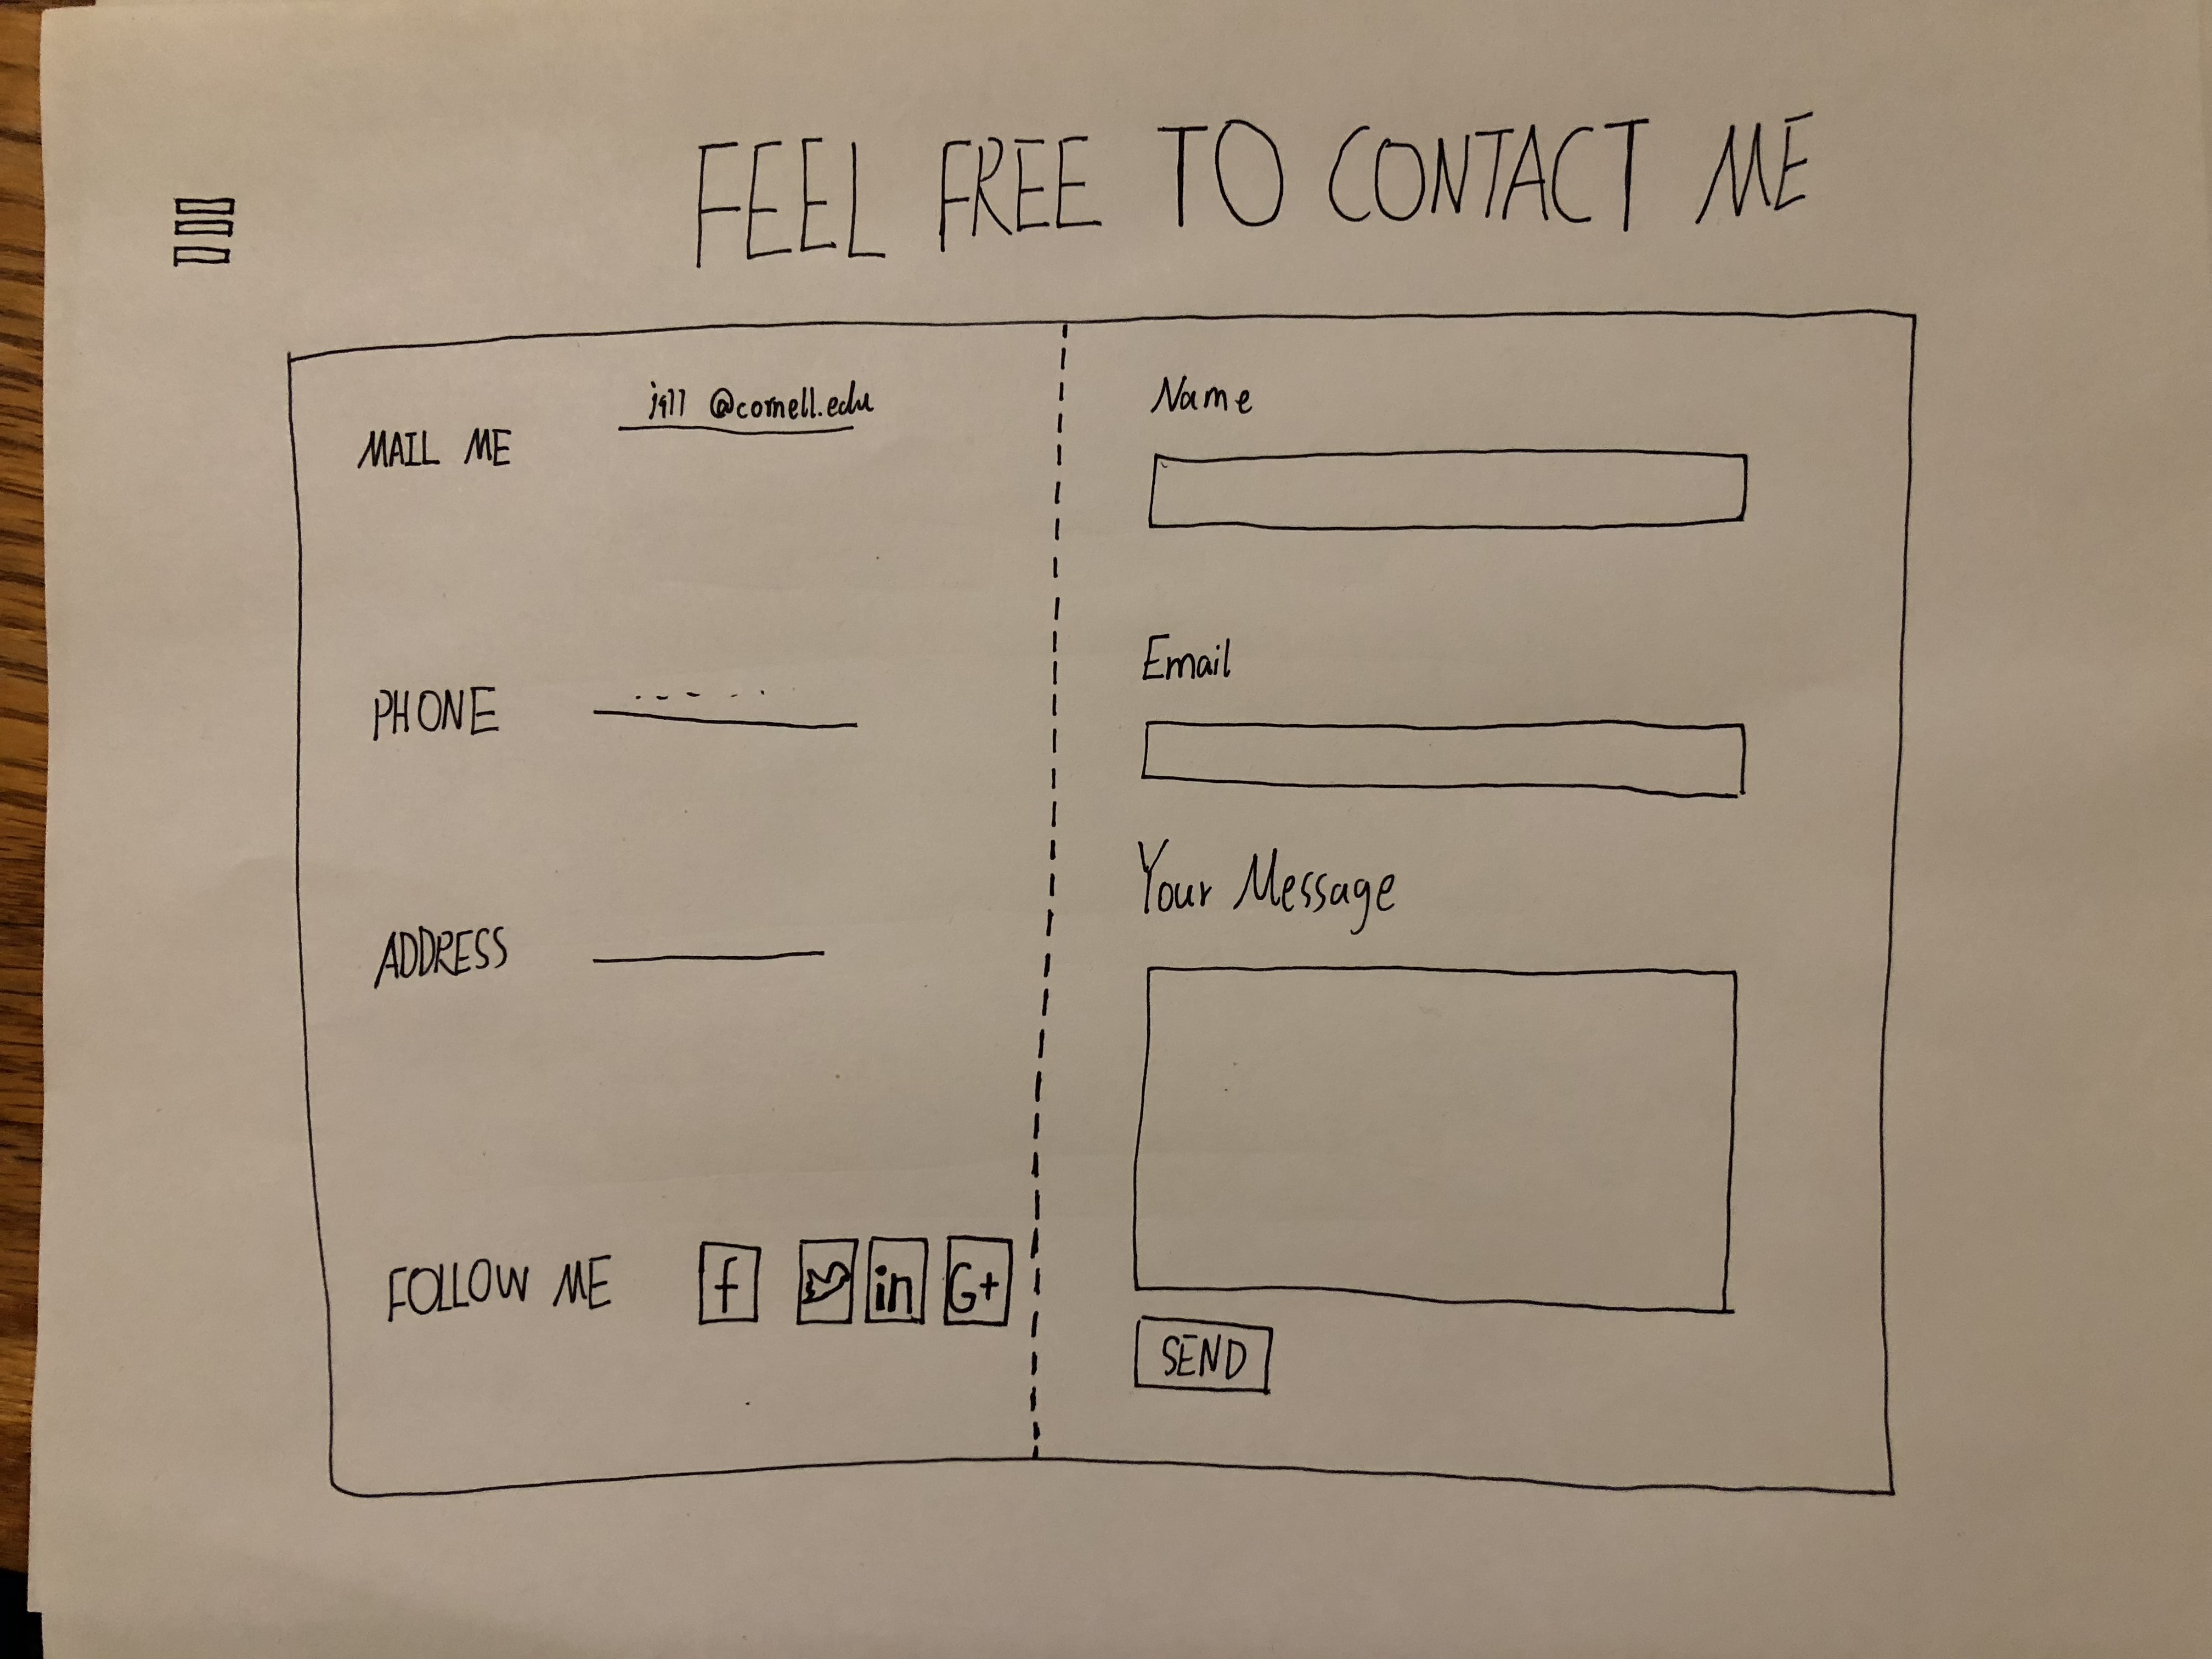 FEEL FREE TO CONTACT ME
MAIL ME
PHONE
ADDRESS
FOLLOW ME f in G+
Name
Email
Your Message
SEND